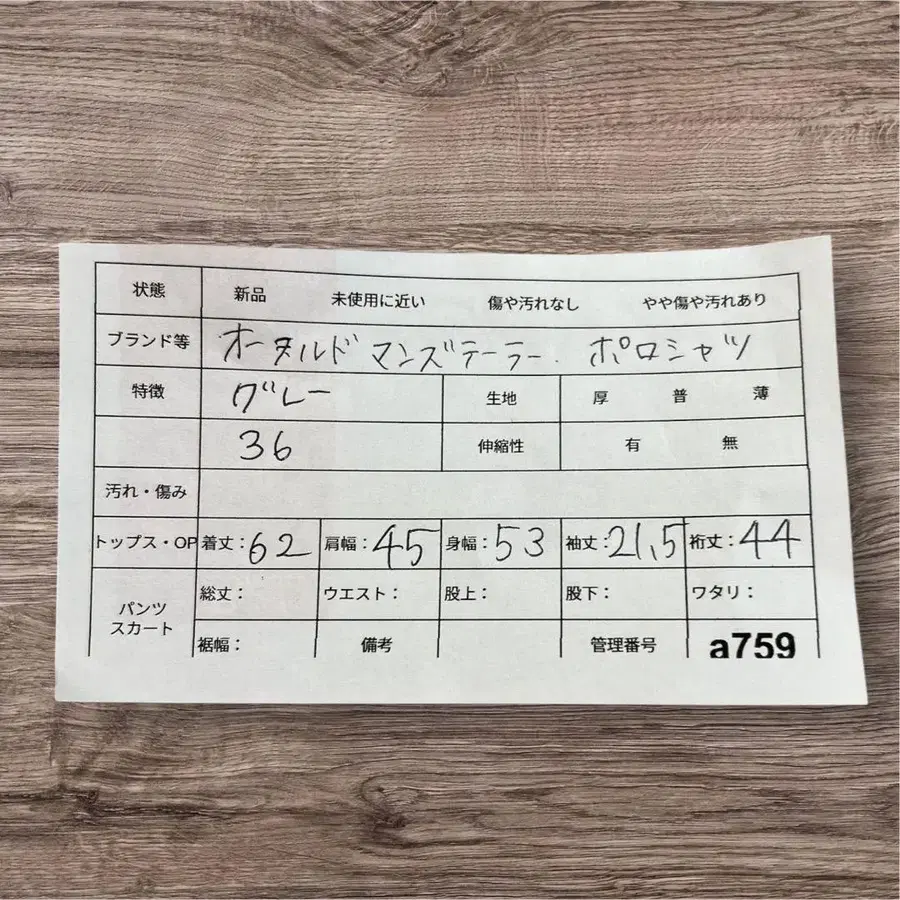 状態 新品 未使用に近い 傷や汚れなし やや傷や汚れあり
ブランド等 オールドマンズテーラー. ポロシャツ
特徴 グレー 生地 厚 普 薄
36 伸縮性 有 無
汚れ・傷み
トップス・OP 着丈:62 肩幅:45 身幅:53 袖丈:21,5 裄丈:44
パンツ スカート 総丈: ウエスト: 股上: 股下: ワタリ:
裾幅: 備考 管理番号 a759